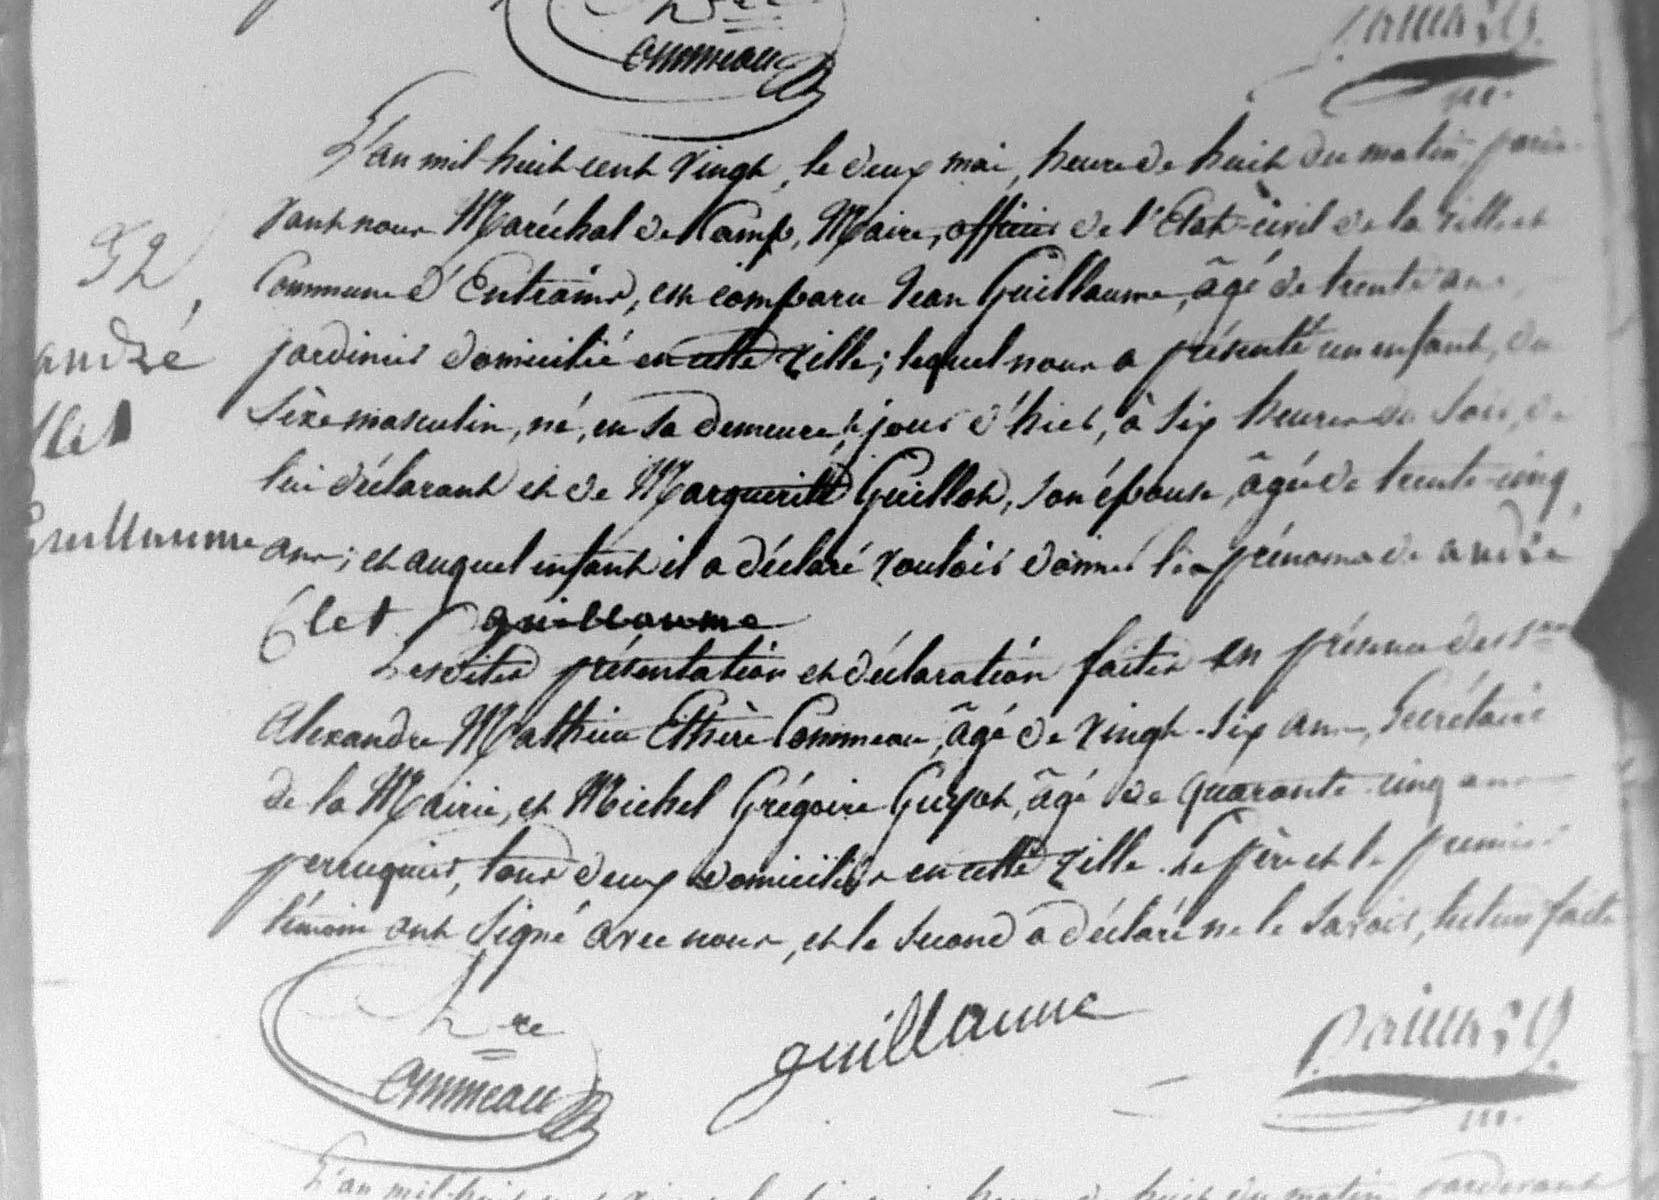 Commeau
L'an mil huit cent vingt, le deux mai, heure de huit du matin, parde-
vant nous Maréchal de Camp, Maire, officier de l'Etat-civil de la ville et
Commune d'Entrains, est comparu Jean Guillaume, âgé de trente ans,
jardinier domicilié en cette ville; lequel nous a présenté un enfant, du
Sèxe masculin, né, en sa demeure, le jour d'hier, à six heures du soir, de
lui déclarant et de Marguerite Guillot, son épouse, âgée de trente-cinq
ans; et auquel enfant il a déclaré vouloir donner les prénoms de andré
Clet guillaume
Lesdites présentation et déclaration faites en présence des Srs
Alexandre Mathieu Ethère Commeau, âgé de vingt-six ans, Secrétaire
de la Mairie, et Michel Grégoire Guyot, âgé de quarante-cinq ans
perruquier, tous deux domiciliés en cette ville. Le père et le premier
témoin ont signé avec nous, et le second a déclaré ne le savoir, lecture faite
52
andré
Clet
Guillaume
Commeau
guillaume
L'an mil huit cent vingt heure de huit du matin pardevant